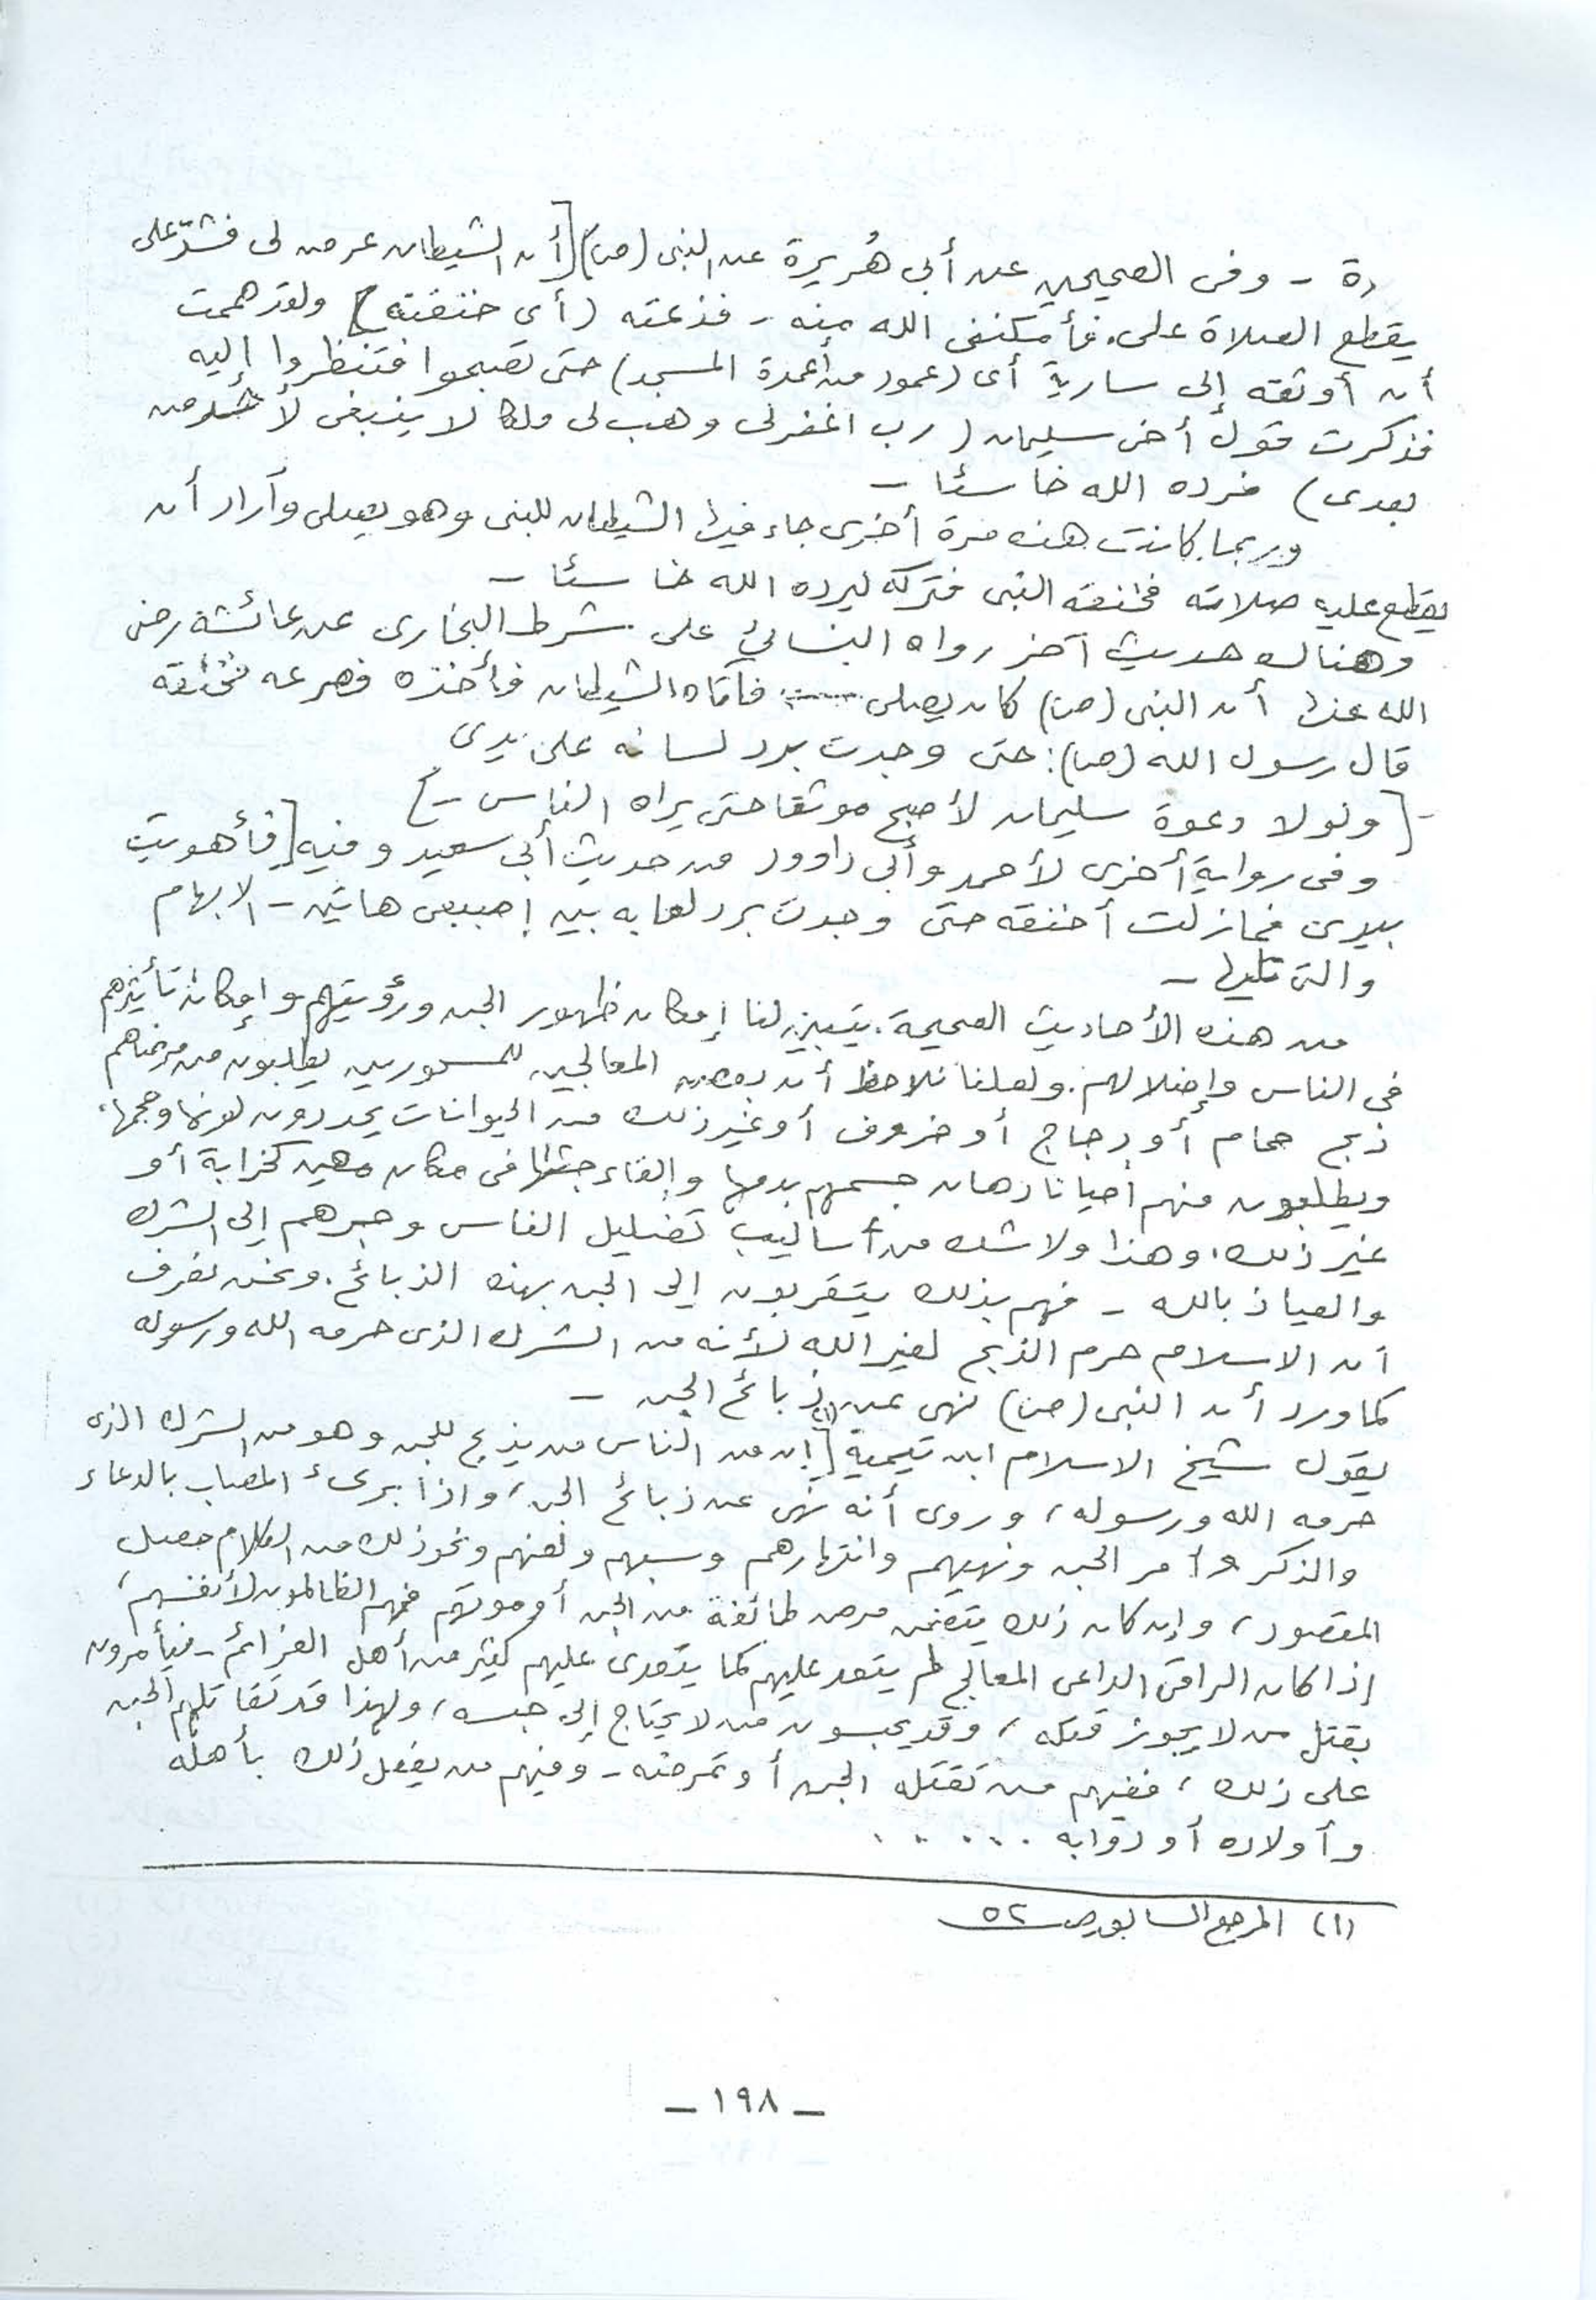 رة - وفى الصحيحين عن أبى هُريرة عن النبى (ص) [أن الشيطان عرض لى فشدّ على
يقطع الصلاة على. فأمكننى الله منه - فذعته (أى خنقته) ولقد هممت
أن أوثقه إلى سارية أى (عمود من أعمدة المسجد) حتى تصبحوا فتنظروا إليه
فذكرت قول أخى سليمان (رب اغفر لى وهب لى ملكا لا ينبغى لأحد من
بعدى) فرده الله خاسئا -
وربما كانت هذه مرة أخرى جاء فيها الشيطان للنبى وهو يصلى وأراد أن
يقطع عليه صلاته فخنقه النبى فتركه ليرده الله خاسئا -
وهناك حديث آخر رواه النسائى على شرط البخارى عن عائشة رضى
الله عنها أن النبى (ص) كان يصلى فأتاه الشيطان فأخذه فصرعه فخنقه
قال رسول الله (ص): حتى وجدت برد لسانه على يدى
- [ولولا دعوة سليمان لأصبح موثقا حتى يراه الناس -]
وفى رواية أخرى لأحمد وأبى داوود من حديث أبى سعيد وفيه [فأهويت
بيدى فمازلت أخنقه حتى وجدت برد لعابه بين إصبعى هاتين - الابهام
والتى تليها -
من هذه الأحاديث الصحيحة. يتبين لنا إمكان ظهور الجن ورؤيتهم وإمكان تأثيرهم
فى الناس وإضلالهم. ولعلنا نلاحظ أن بعض المعالجين للمسحورين يطلبون من مرضاهم
ذبح حمام أو دجاج أو خروف أو غير ذلك من الحيوانات يحددون لونها وحجمها،
ويطلبون منهم أحيانا دهان جسمهم بدمها وإلقاء جثتها فى مكان مهين كخرابة أو
غير ذلك، وهذا ولا شك من أساليب تضليل الناس وجرهم إلى الشرك
والعياذ بالله - فهم بذلك يتقربون إلى الجن بهذه الذبائح. ونحن نعرف
أن الاسلام حرم الذبح لغير الله لأنه من الشرك الذى حرمه الله ورسوله
كما ورد أن النبى (ص) نهى عن ذبائح الجن -
يقول شيخ الاسلام ابن تيمية (١) [إن من الناس من يذبح للجن وهو من الشرك الذى
حرمه الله ورسوله، وروى أنه نهى عن ذبائح الجن، واذا برىء المصاب بالدعاء
والذكر وأمر الجن ونهيهم وانتهارهم وسبهم ولعنهم ونحو ذلك من الكلام حصل
المقصود، وإن كان ذلك يتضمن مرض طائفة من الجن أو موتهم فهم الظالمون لأنفسهم،
إذا كان الراقى الداعى المعالج لم يتعد عليهم كما يتعدى عليهم كثير من أهل العزائم - فيأمرون
بقتل من لا يجوز قتله، وقد يحبسون من لا يحتاج إلى حبسه، ولهذا قد تقاتلهم الجن
على ذلك، ففيهم من تقتله الجن أو تمرضه - وفيهم من يفعل ذلك بأهله
وأولاده أو دوابه . . . . . .
(١) المرجع السابق ص ٥٢
- ١٩٨ -